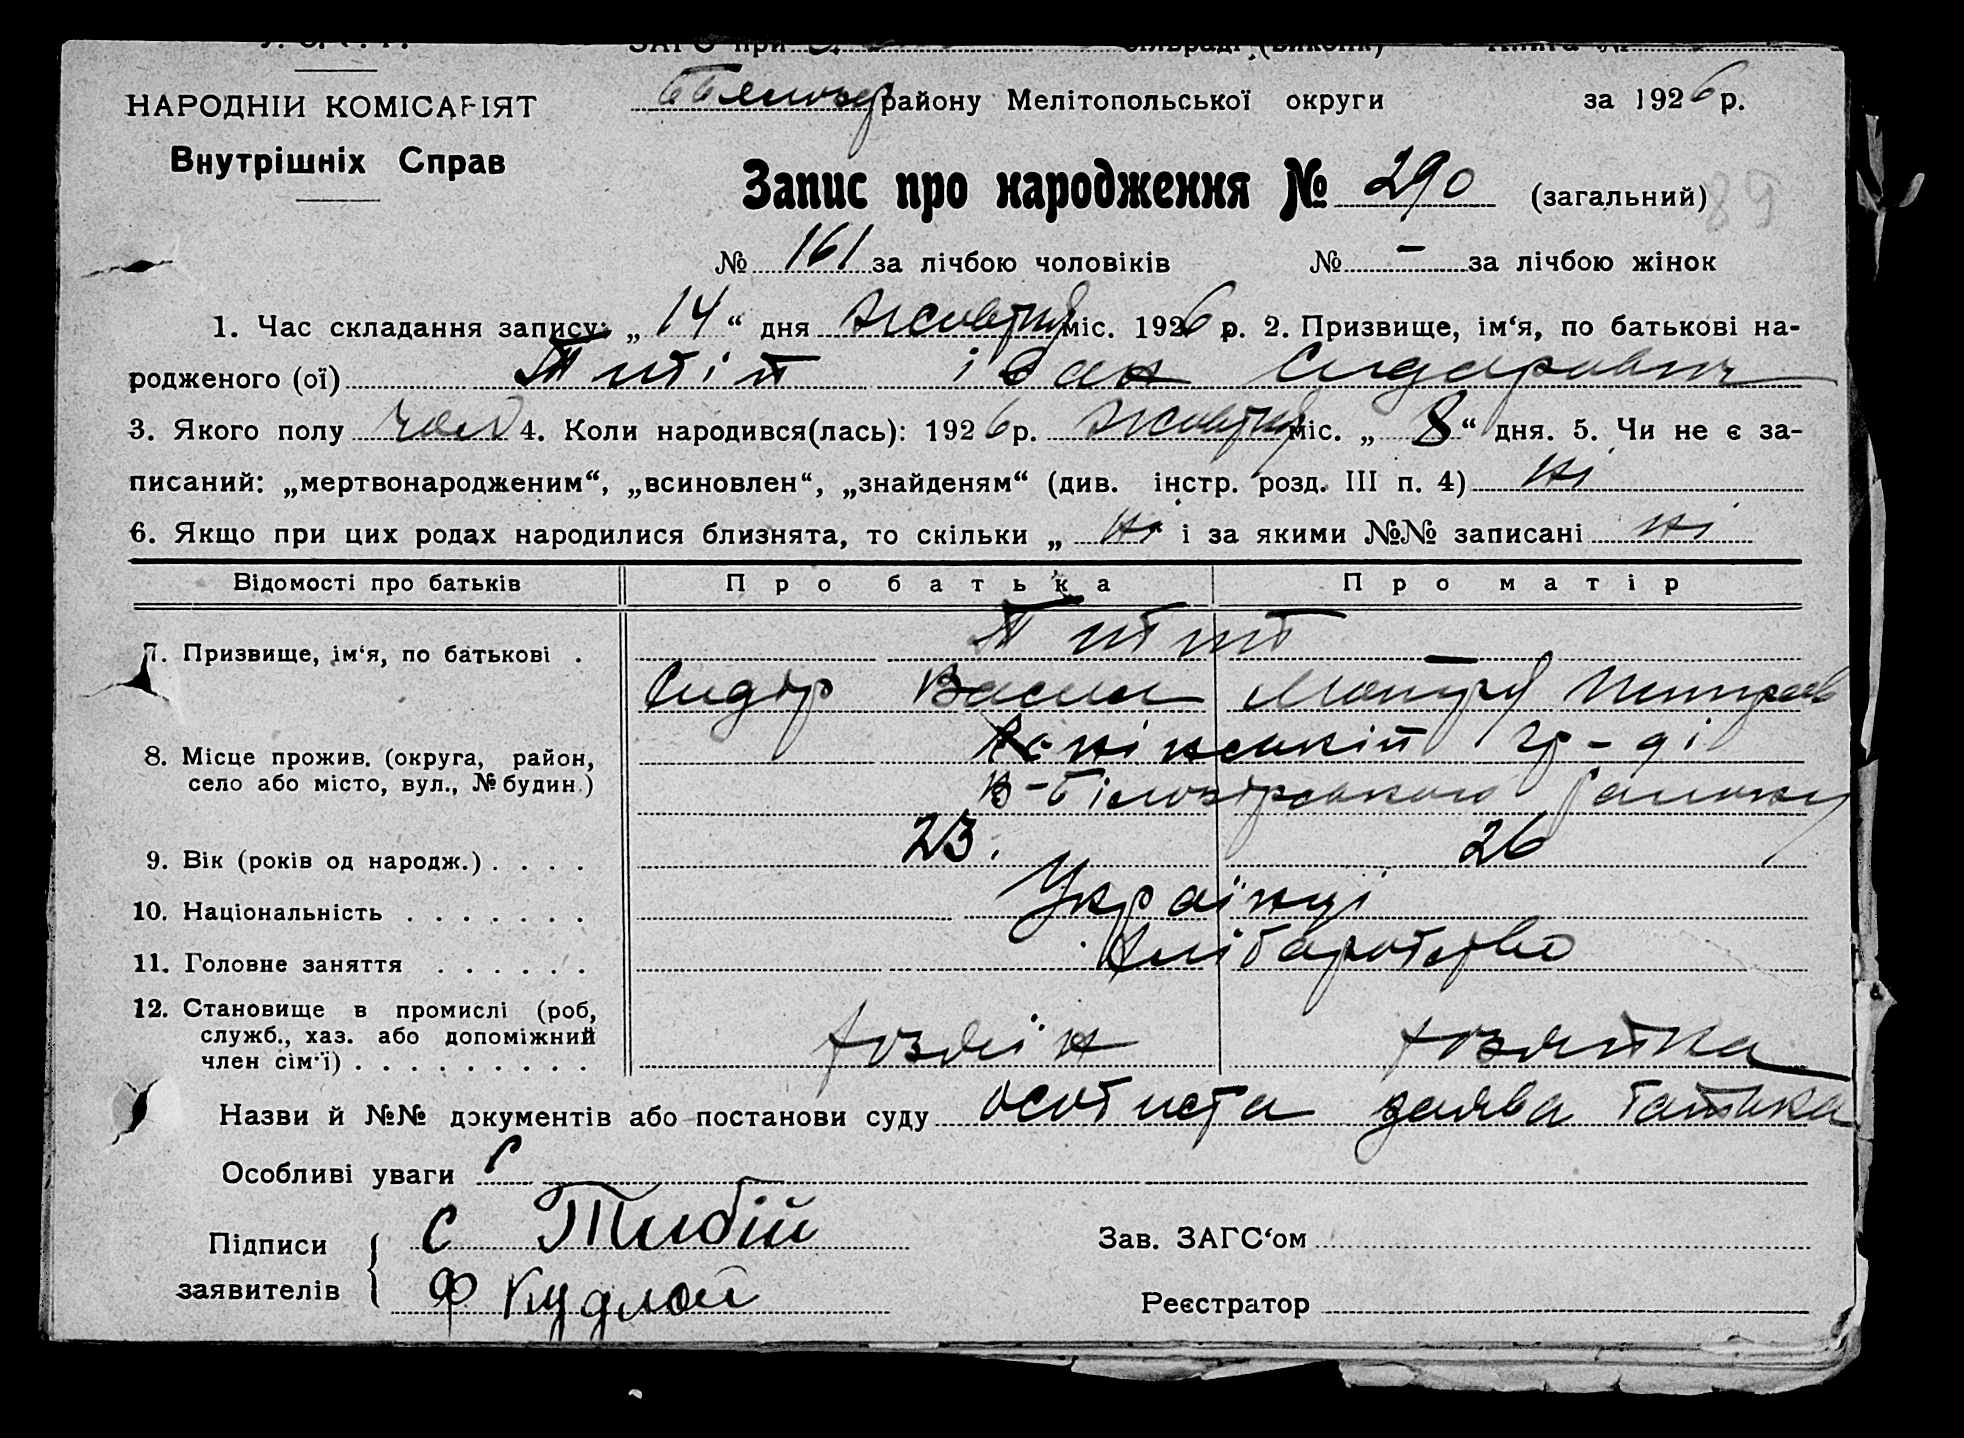 НАРОДНІЙ КОМІСАРІЯТ
Внутрішніх Справ
району Мелітопольської округи за 1926 р.
Запис про народження № 290 (загальний) 89
№ 161 за лічбою чоловіків № - за лічбою жінок
1. Час складання запису: „ 14 “ дня жовтня міс. 1926 р. 2. Призвище, ім‘я, по батькові на-
родженого (ої) Тибій Іван Сидорович
3. Якого полу чол 4. Коли народився(лась): 1926 р. жовтня міс. „ 8 “ дня. 5. Чи не є за-
писаний: „мертвонародженим“, „всиновлен“, „знайденям“ (див. інстр. розд. III п. 4) ні
6. Якщо при цих родах народилися близнята, то скільки „ ні і за якими №№ записані ні
Відомості про батьків Про батька Про матір
7. Призвище, ім‘я, по батькові .
Сидір Васил Мотря
8. Місце прожив. (округа, район,
село або місто, вул., № будин.)
В-Білозірського району
9. Вік (років од народж.) . . . . 23. 26
10. Національність . . . . . . . Українці
11. Головне заняття . . . . . . Хліборобство
12. Становище в промислі (роб,
служб., хаз. або допоміжний
член сім‘ї) . . . . . . . . . хозяїн хозяйка
Назви й №№ документів або постанови суду особиста заява батька
Особливі уваги
Підписи
заявителів
С Тибій
Ф Кудлой
Зав. ЗАГС‘ом
Реєстратор